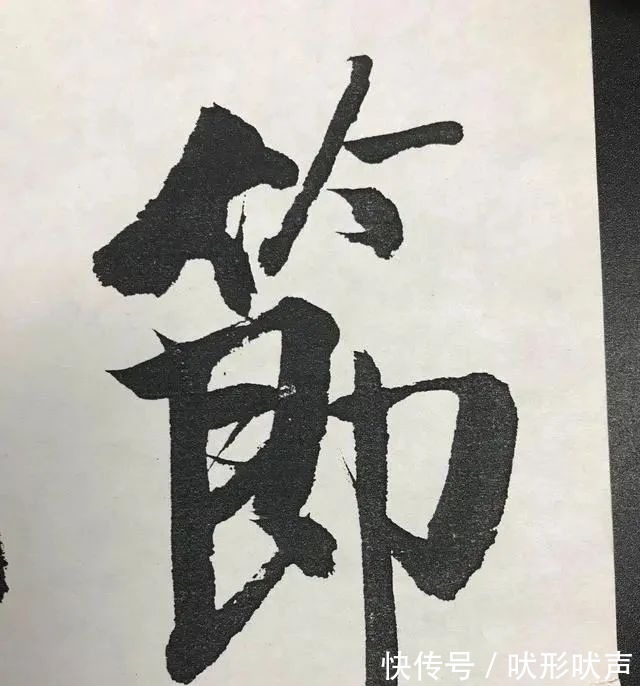 節
快传号 / 吠形吠声